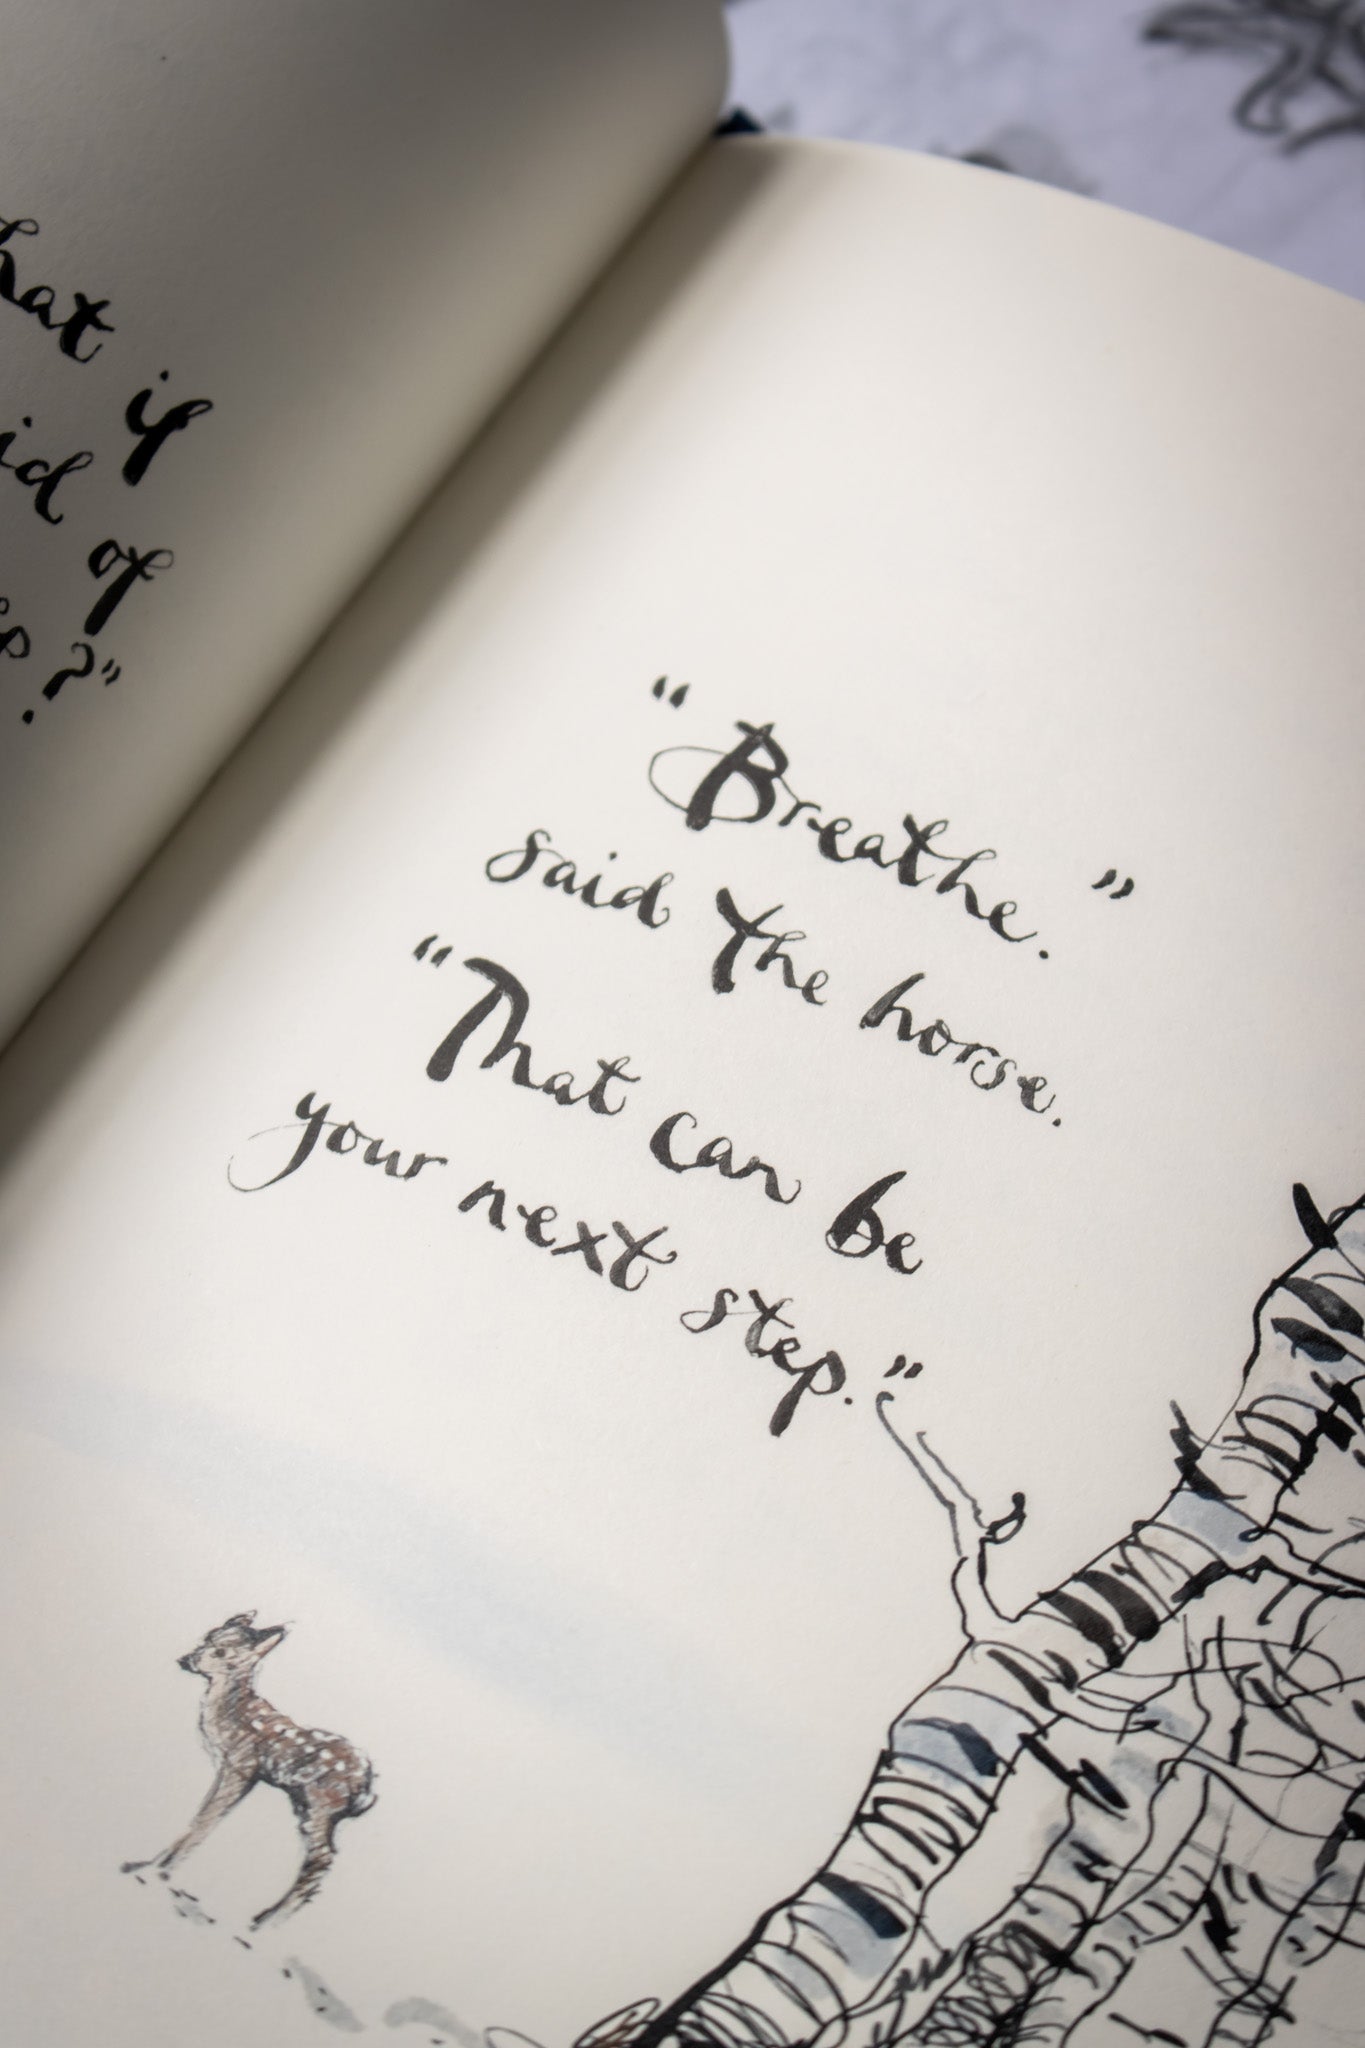 hat if
id of
?"
"Breathe."
said the horse.
"That can be
your next step."